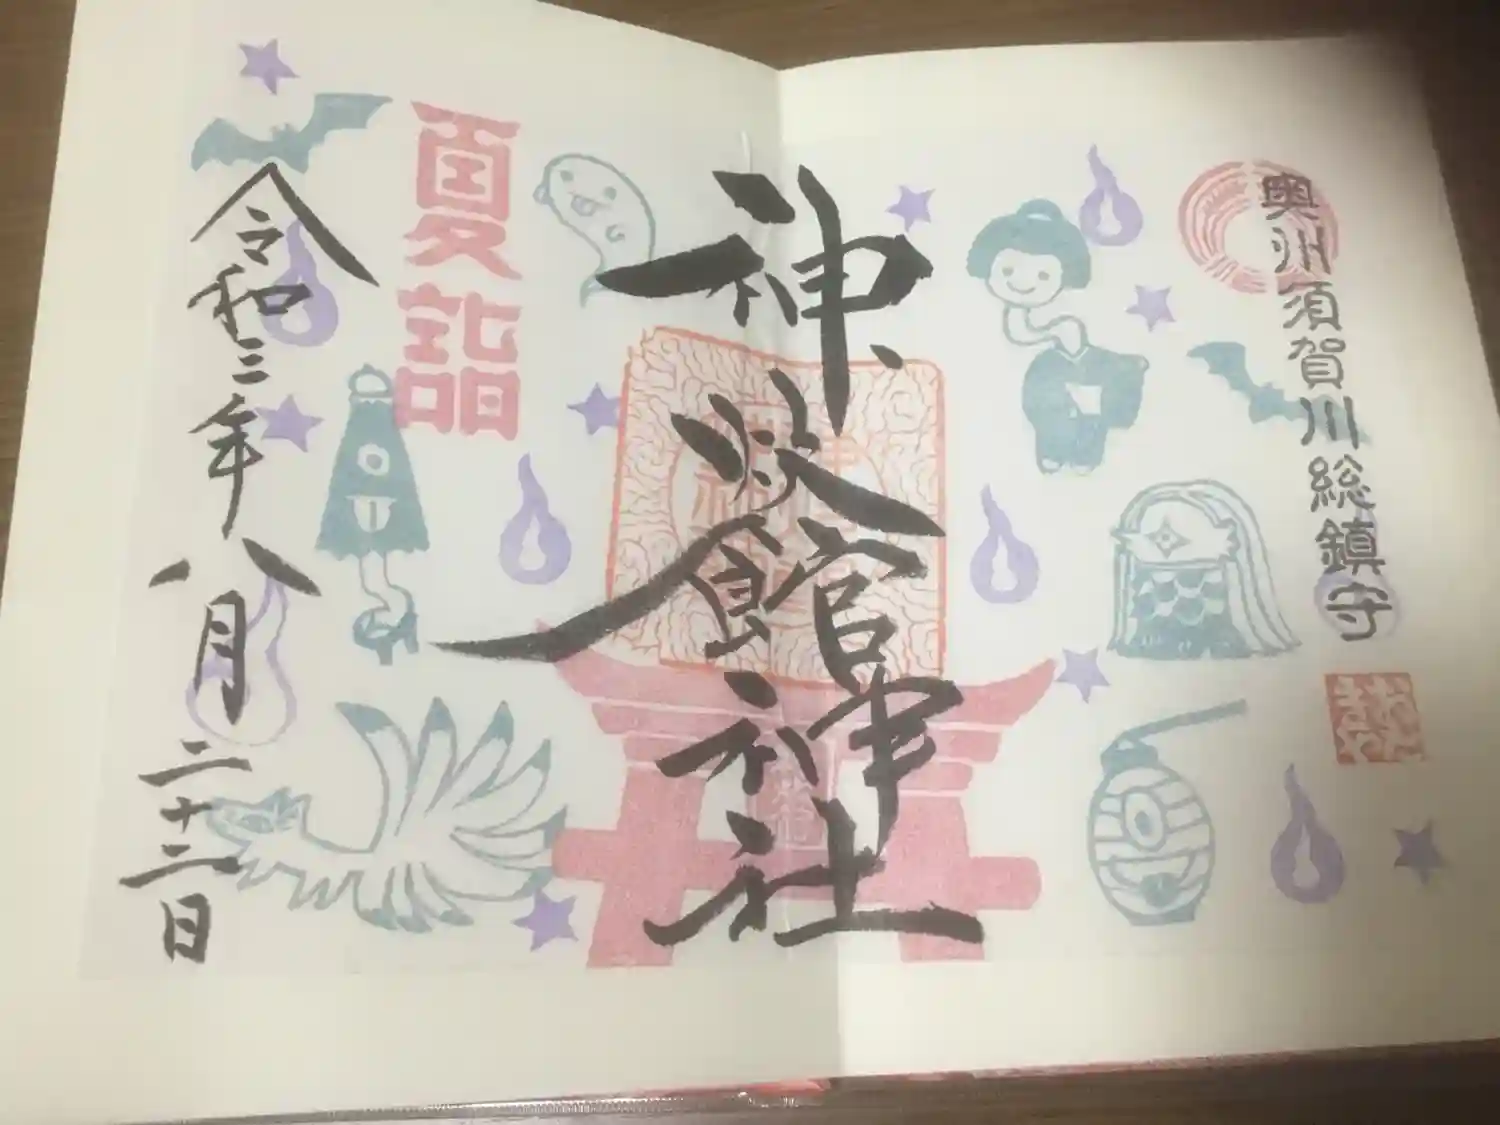 奥州須賀川総鎮守
おた
きや
神炊館神社
夏詣
令和三年八月二十二日